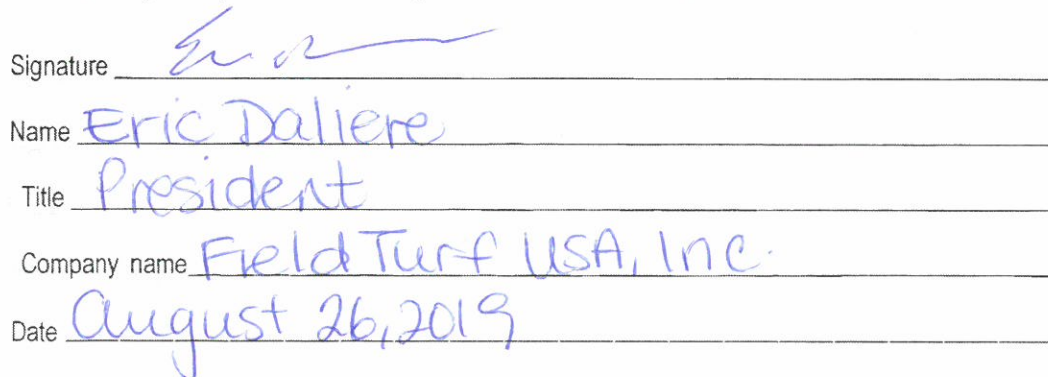 Signature
Name Eric Daliere
Title President
Company name FieldTurf USA, Inc.
Date August 26, 2019